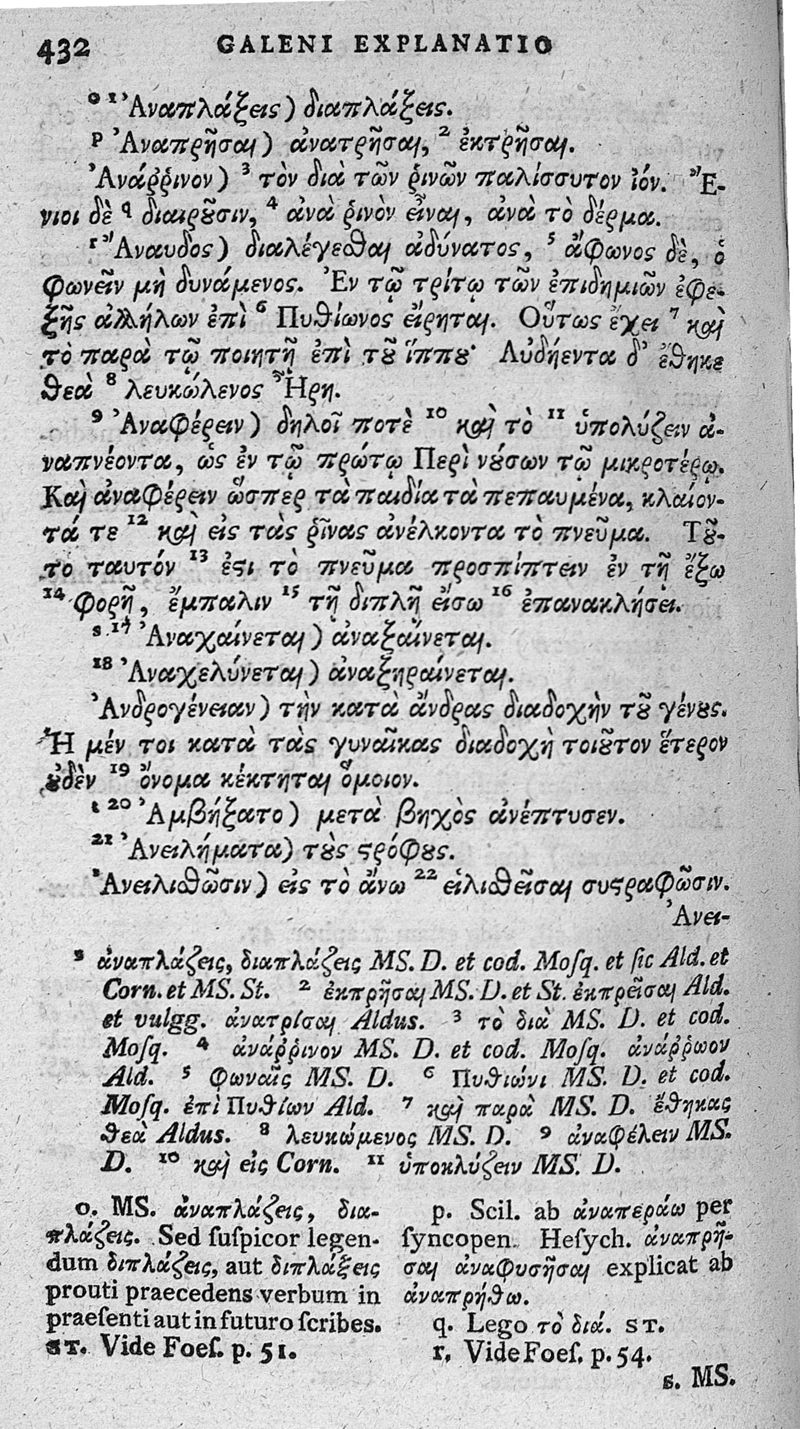 432 GALENI EXPLANATIO
ο 1 Ἀναπλάξεις) διαπλάξεις.
p Ἀναπρῆσαι) ἀνατρῆσαι, 2 ἐκτρῆσαι.
Ἀνάῤῥινον) 3 τὸν διὰ τῶν ῥινῶν παλίσσυτον ἰόν. Ἔ-
νιοι δὲ q διαιρȣσιν, 4 ἀνὰ ῥινὸν εἶναι, ἀνὰ τὸ δέρμα.
r Ἄναυδος) διαλέγεσθαι ἀδύνατος, 5 ἄφωνος δὲ, ὁ
φωνεῖν μὴ δυνάμενος. Ἐν τῷ τρίτῳ τῶν ἐπιδημιῶν ἐφε-
ξῆς ἀλλήλων ἐπὶ 6 Πυθίωνος εἴρηται. Οὕτως ἔχει 7 καὶ
τὸ παρὰ τῷ ποιητῇ ἐπὶ τȣ͂ ἵππȣ· Αὐδήεντα δ' ἔθηκε
θεὰ 8 λευκώλενος Ἥρη.
9 Ἀναφέρειν) δηλοῖ ποτὲ 10 καὶ τὸ 11 ὑπολύζειν ἀ-
ναπνέοντα, ὡς ἐν τῷ πρώτῳ Περὶ νȣ́σων τῷ μικροτέρῳ.
Καὶ ἀναφέρειν ὥσπερ τὰ παιδία τὰ πεπαυμένα, κλαίον-
τά τε 12 καὶ εἰς τὰς ῥῖνας ἀνέλκοντα τὸ πνεῦμα. Τȣ͂-
το ταυτόν 13 ἐϛι τὸ πνεῦμα προσπίπτειν ἐν τῇ ἔξω
14 φορῇ, ἔμπαλιν 15 τῇ διπλῇ εἴσω 16 ἐπανακλήσει.
s 17 Ἀναχαίνεται) ἀναξαίνεται.
18 Ἀναχελύνεται) ἀναξηραίνεται.
Ἀνδρογένειαν) τὴν κατὰ ἄνδρας διαδοχὴν τȣ͂ γένȣς.
Ἡ μέν τοι κατὰ τὰς γυναῖκας διαδοχὴ τοιȣ͂τον ἕτερον
ȣ̓δὲν 19 ὄνομα κέκτηται ὅμοιον.
t 20 Ἀμβήξατο) μετὰ βηχὸς ἀνέπτυσεν.
21 Ἀνειλήματα) τȣ̀ς ϛρόφȣς.
Ἀνειλιθῶσιν) εἰς τὸ ἄνω 22 εἱλιθεῖσαι συϛραφῶσιν.
Ἀνει-
1 ἀναπλάζεις, διαπλάζεις MS. D. et cod. Moſq. et ſic Ald. et
Corn. et MS. St. 2 ἐκπρῆσαι MS. D. et St. ἐκπρεῖσαι Ald.
et vulgg. ἀνατρίσαι Aldus. 3 τὸ διὰ MS. D. et cod.
Moſq. 4 ἀνάῤῥινον MS. D. et cod. Moſq. ἀνάῤῥωον
Ald. 5 φωναῖς MS. D. 6 Πυθιώνι MS. D. et cod.
Moſq. ἐπὶ Πυθίων Ald. 7 καὶ παρὰ MS. D. ἔθηκας
θεὰ Aldus. 8 λευκώμενος MS. D. 9 ἀναφέλειν MS.
D. 10 καὶ εἰς Corn. 11 ὑποκλύζειν MS. D.
o. MS. ἀναπλάζεις, δια-
πλάζεις. Sed ſuſpicor legen-
dum διπλάζεις, aut διπλάξεις
prouti praecedens verbum in
praeſenti aut in futuro ſcribes.
ST. Vide Foeſ. p. 51.
p. Scil. ab ἀναπεράω per
ſyncopen. Heſych. ἀναπρῆ-
σαι ἀναφυσῆσαι explicat ab
ἀναπρήθω.
q. Lego τὸ διά. ST.
r. Vide Foeſ. p. 54.
s. MS.